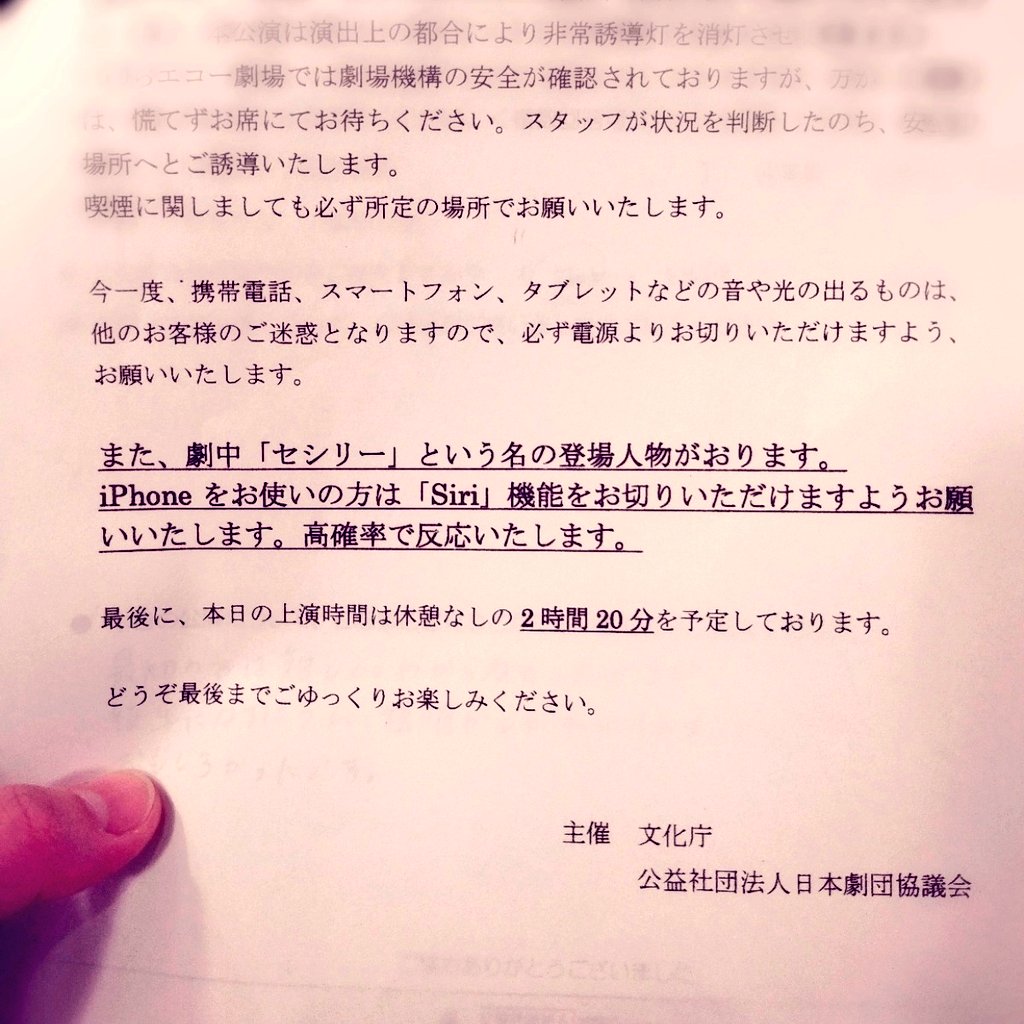 公演は演出上の都合により非常誘導灯を消灯させ
エコー劇場では劇場機構の安全が確認されておりますが、万が
は、慌てずお席にてお待ちください。スタッフが状況を判断したのち、安
場所へとご誘導いたします。
喫煙に関しましても必ず所定の場所でお願いいたします。
今一度、携帯電話、スマートフォン、タブレットなどの音や光の出るものは、
他のお客様のご迷惑となりますので、必ず電源よりお切りいただけますよう、
お願いいたします。
また、劇中「セシリー」という名の登場人物がおります。
iPhone をお使いの方は「Siri」機能をお切りいただけますようお願
いいたします。高確率で反応いたします。
最後に、本日の上演時間は休憩なしの 2 時間 20 分を予定しております。
どうぞ最後までごゆっくりお楽しみください。
主催　文化庁
公益社団法人日本劇団協議会